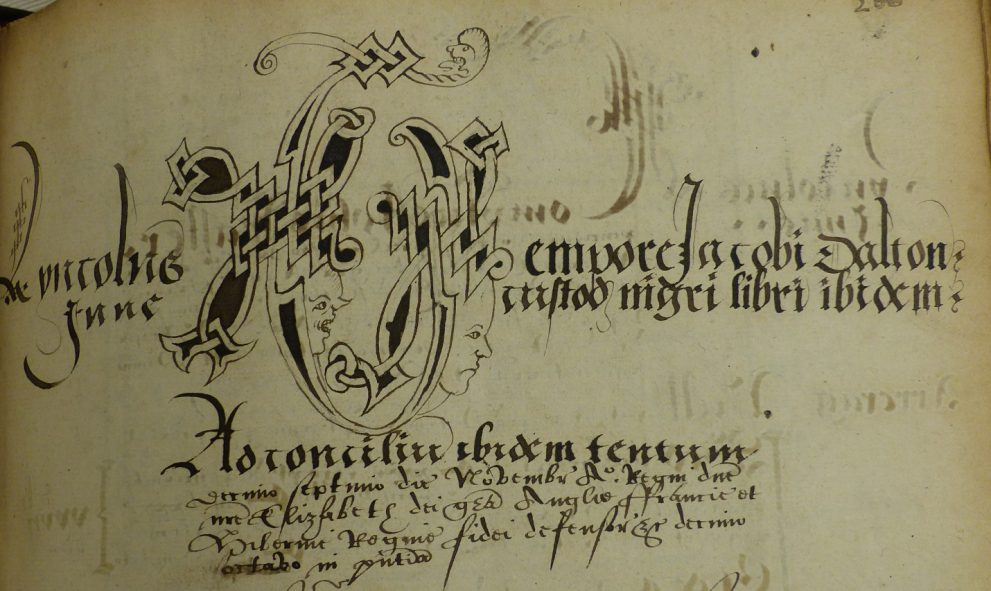 de lyncolnes Tempore Jacobi Dalton
Inne custod nigri libri ibidem
Ad conciliu ibidem tentum
decimo septimo die Novembr Ao. Regni dne
nre Elizabeth dei gra Anglie ffrancie et
Hibernie Regine fidei defensor &c decimo
octavo in pntia